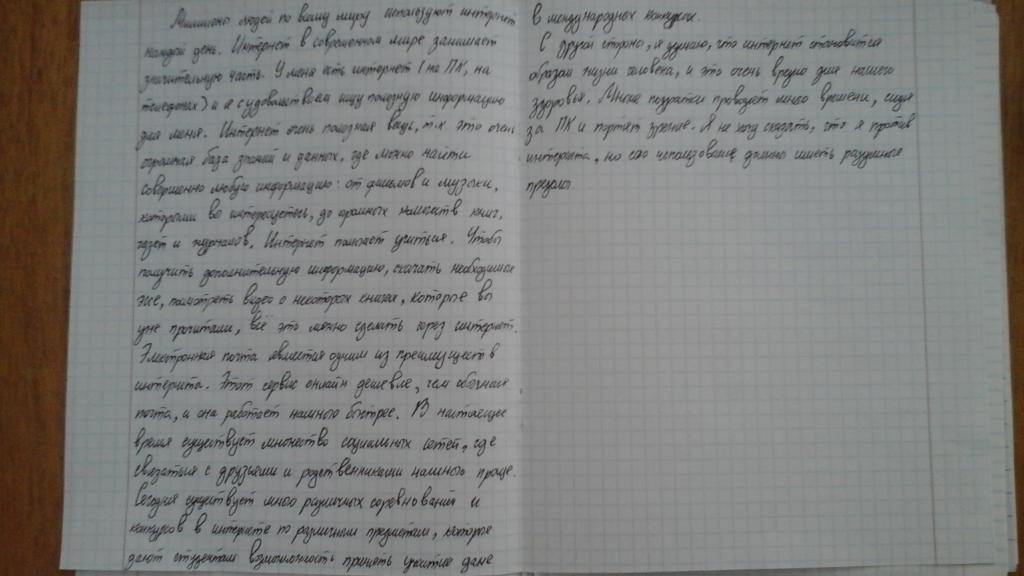 Миллионы людей по всему миру используют интернет
каждый день. Интернет в современном мире занимает
значительную часть. У меня есть интернет (на ПК, на
телефоне) и я с удовольствием ищу полезную информацию
для меня. Интернет очень полезная вещь, т.к это очень
огромная база знаний и данных, где можно найти
совершенно любую информацию: от фильмов и музыки,
которыми вы интересуетесь, до огромных количеств книг,
газет и журналов. Интернет помогает учиться. Чтобы
получить дополнительную информацию, скачать необходимое
посмотреть видео о некоторых книгах, которые вы
уже прочитали, всё это можно сделать через интернет.
Электронная почта является одним из преимуществ
интернета. Этот сервис онлайн дешевле, чем обычная
почта, и она работает намного быстрее. В настоящее
время существует множество социальных сетей, где
связаться с друзьями и родственниками намного проще.
Сегодня существует много различных соревнований и
конкурсов в интернете по различным предметам, которые
дают студентам возможность принять участие даже
в международных конкурсах.
С другой стороны, я думаю, что интернет становится
образом жизни человека, и это очень вредно для нашего
здоровья. Многие подростки проводят много времени, сидя
за ПК и портят зрение. Я не хочу сказать, что я против
интернета, но его использование должно иметь разумные
пределы